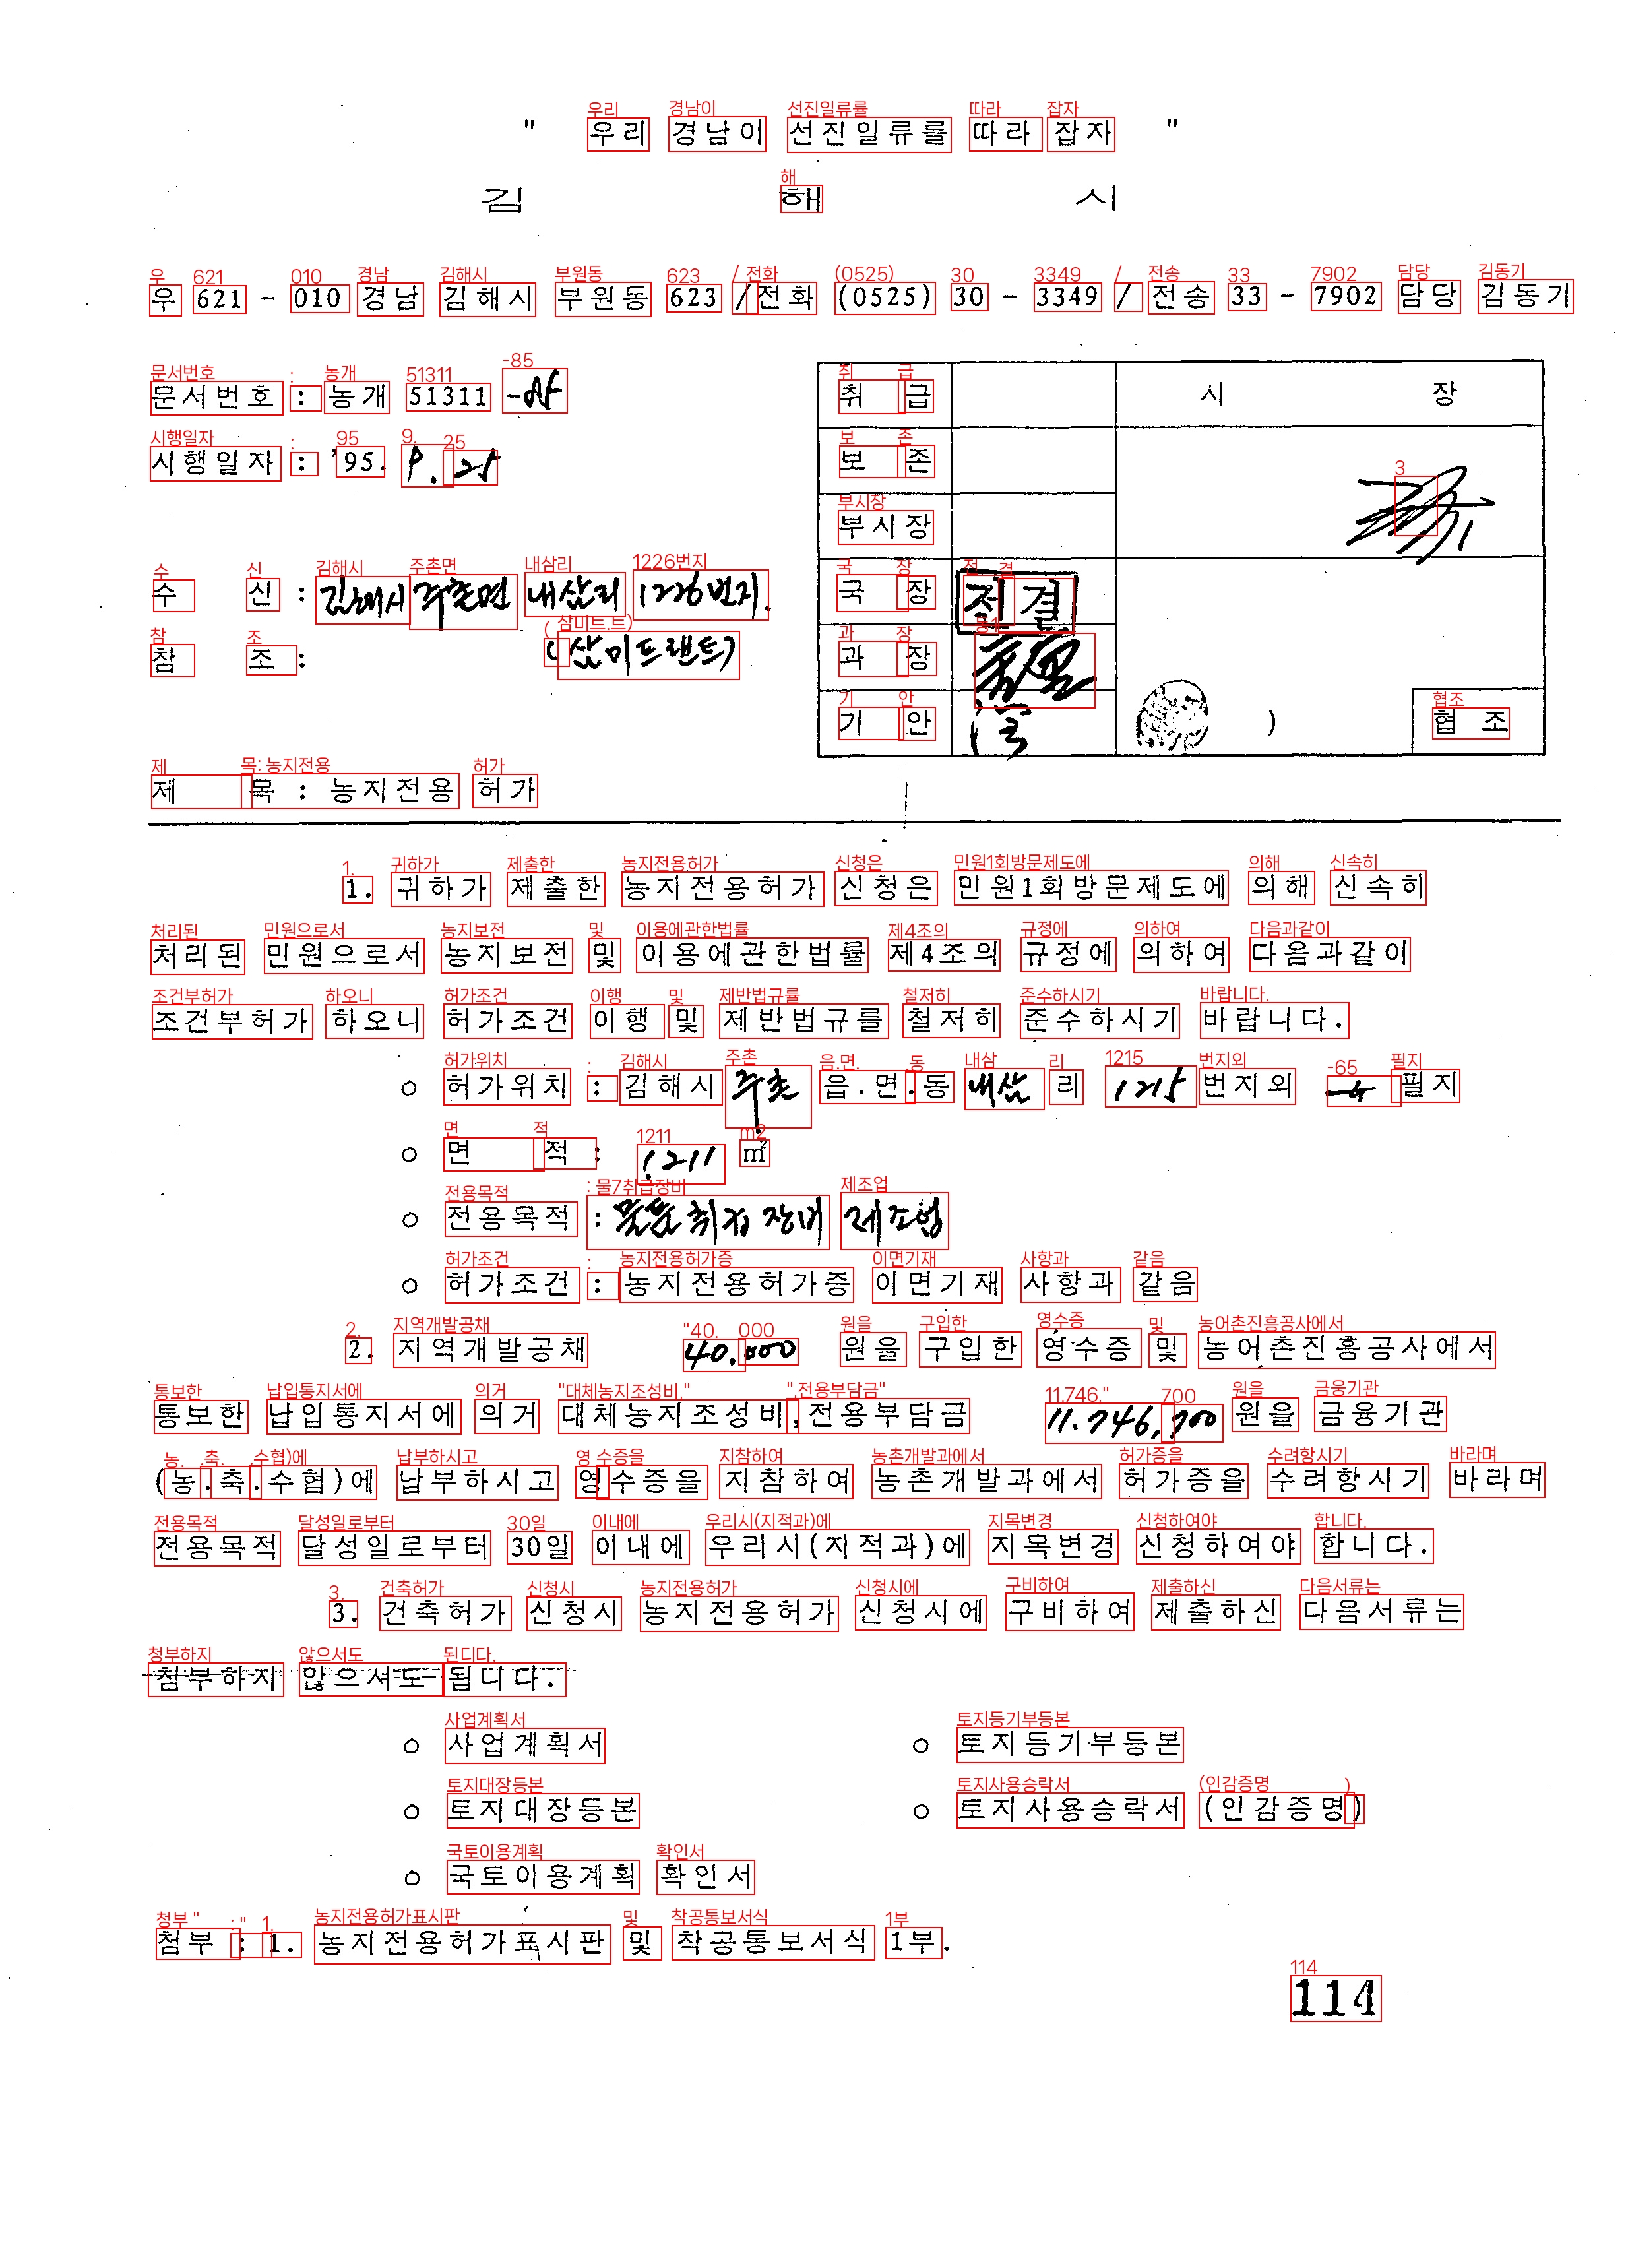 " 우리 경남이 선진일류를 따라 잡자 "
김 해 시
우 621 - 010 경남 김해시 부원동 623 / 전화 (0525) 30 - 3349 / 전송 33 - 7902 담당 김동기
문서번호 : 농개 51311
시행일자 : '95. 9. 25
수 신 : 김해시 주촌면 내삼리 1226번지.
참 조 : (삼미트랜트)
취 급
시 장
보 존
부시장
국 장 전결
과 장
기 안
협 조
제 목 : 농지전용 허가
1. 귀하가 제출한 농지전용허가 신청은 민원1회방문제도에 의해 신속히
처리된 민원으로서 농지보전 및 이용에관한법률 제4조의 규정에 의하여 다음과같이
조건부허가 하오니 허가조건 이행 및 제반법규를 철저히 준수하시기 바랍니다.
o 허가위치 : 김해시 주촌 읍.면.동 내삼 리 1215 번지외 필지
o 면 적 : 1211 m²
o 전용목적 : 물품취급장비 제조업
o 허가조건 : 농지전용허가증 이면기재 사항과 같음
2. 지역개발공채 40,000 원을 구입한 영수증 및 농어촌진흥공사에서
통보한 납입통지서에 의거 대체농지조성비,전용부담금 11.746,700 원을 금융기관
(농.축.수협)에 납부하시고 영수증을 지참하여 농촌개발과에서 허가증을 수려항시기 바라며
전용목적 달성일로부터 30일 이내에 우리시(지적과)에 지목변경 신청하여야 합니다.
3. 건축허가 신청시 농지전용허가 신청시에 구비하여 제출하신 다음서류는
첨부하지 않으셔도 됩니다.
o 사업계획서 o 토지등기부등본
o 토지대장등본 o 토지사용승락서 (인감증명)
o 국토이용계획 확인서
첨부 : 1. 농지전용허가표시판 및 착공통보서식 1부.
114